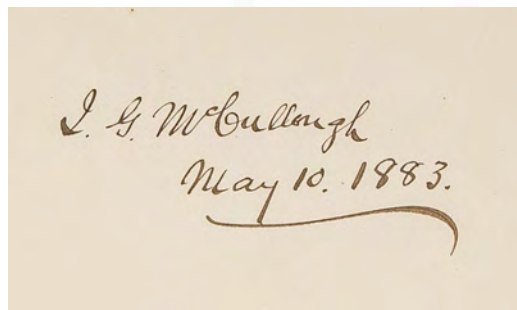 J. G. McCullough
May 10. 1883.